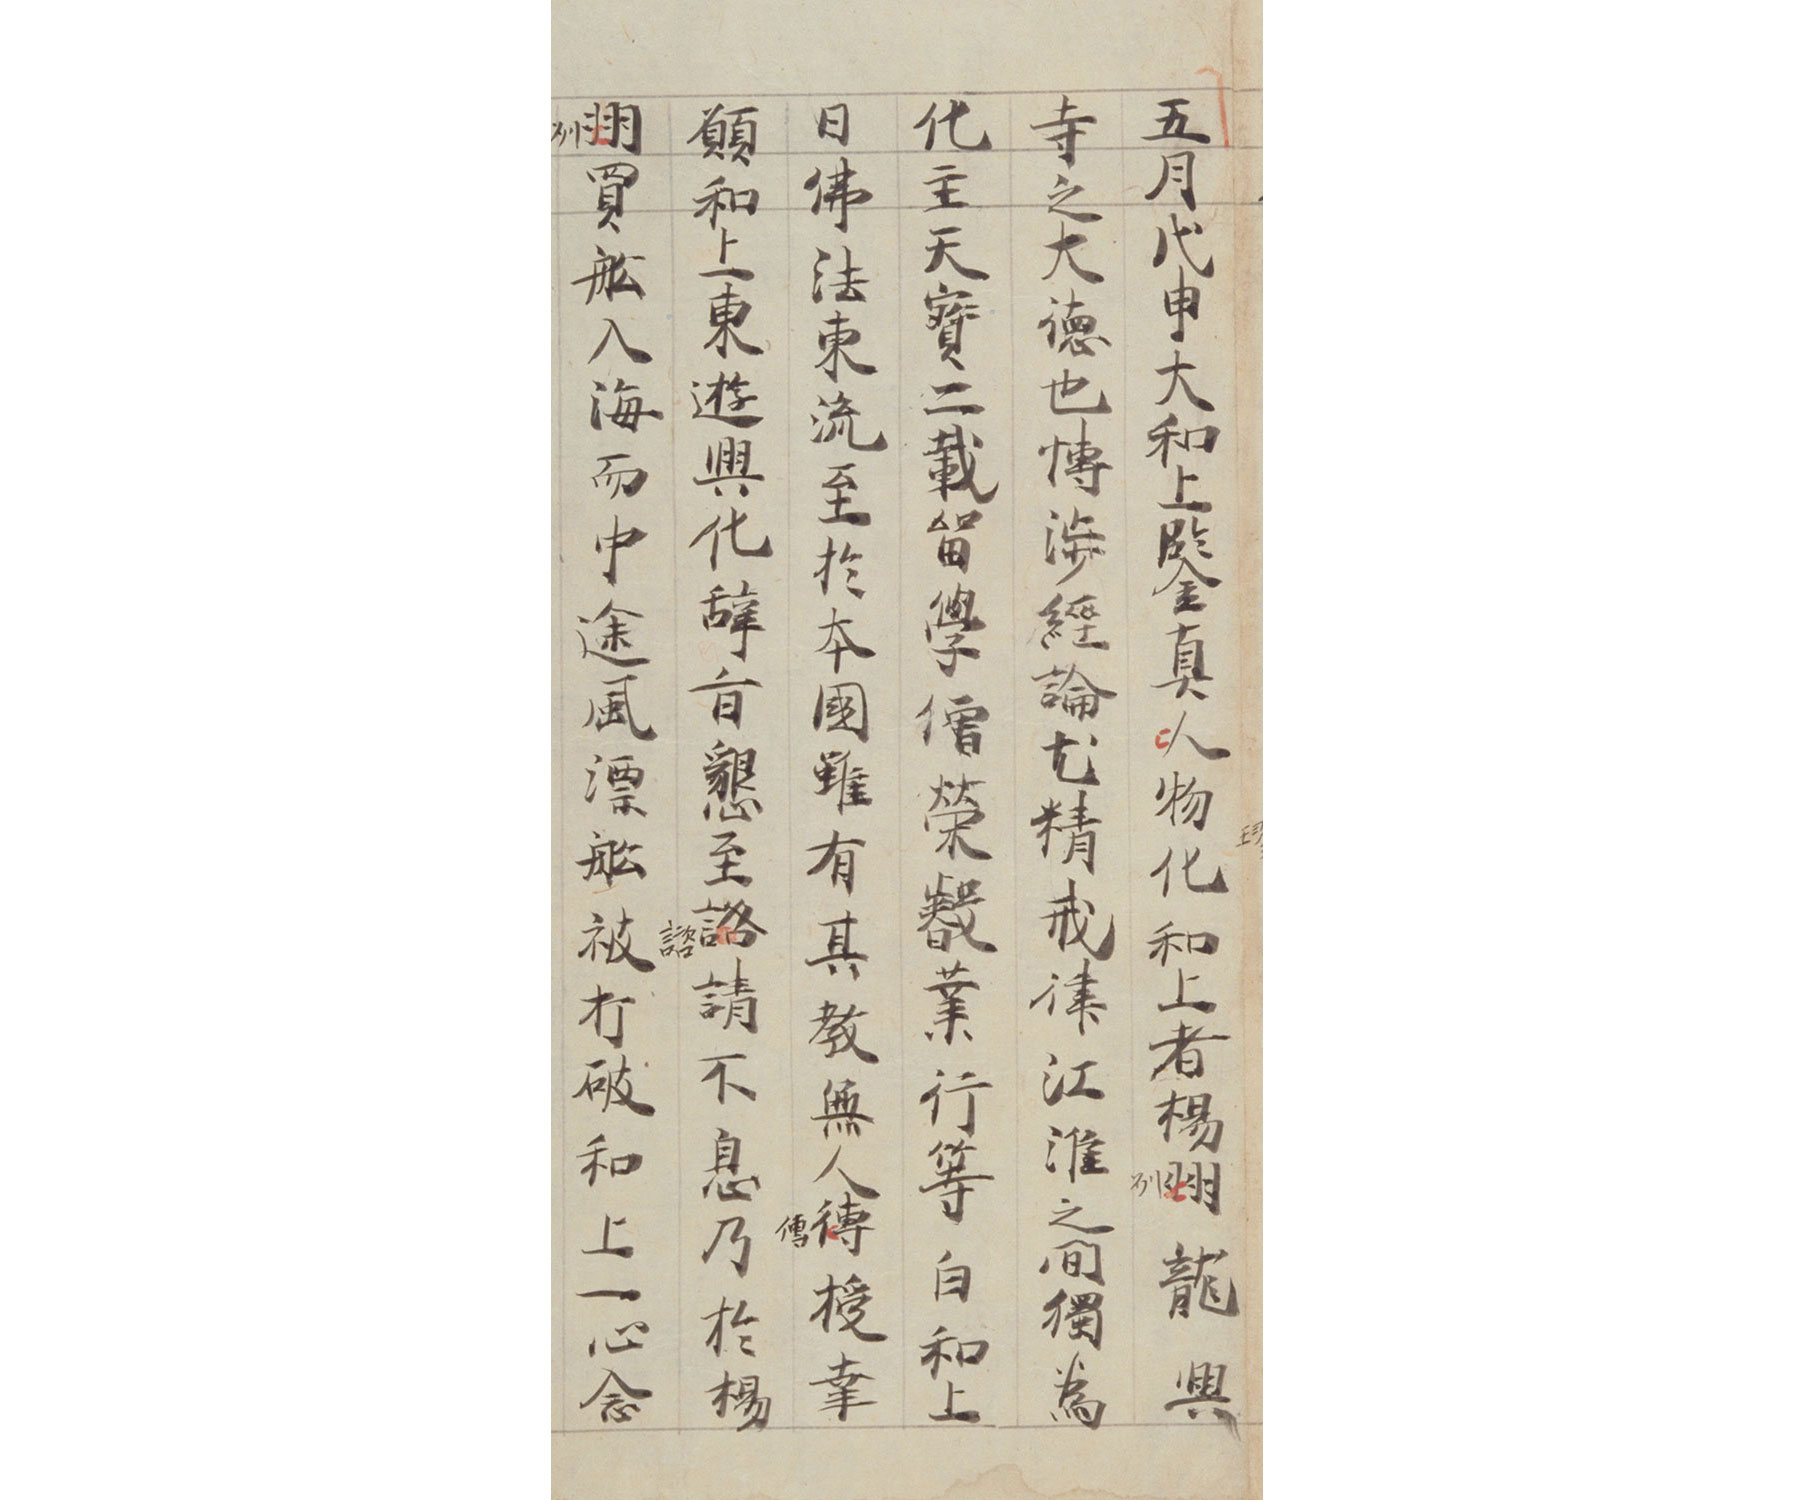 五月戊申大和上鑒真人物化和上者楊州龍興
州
寺之大德也博渉經論尤精戒律江淮之間獨為
化主天寶二載留學僧榮叡業行等白和上
日佛法東流至於本國雖有其教無人傳授幸
傳
願和上東遊興化辞旨懇至諮請不息乃於楊
諮
州買舩入海而中途風漂舩被打破和上一心念
州